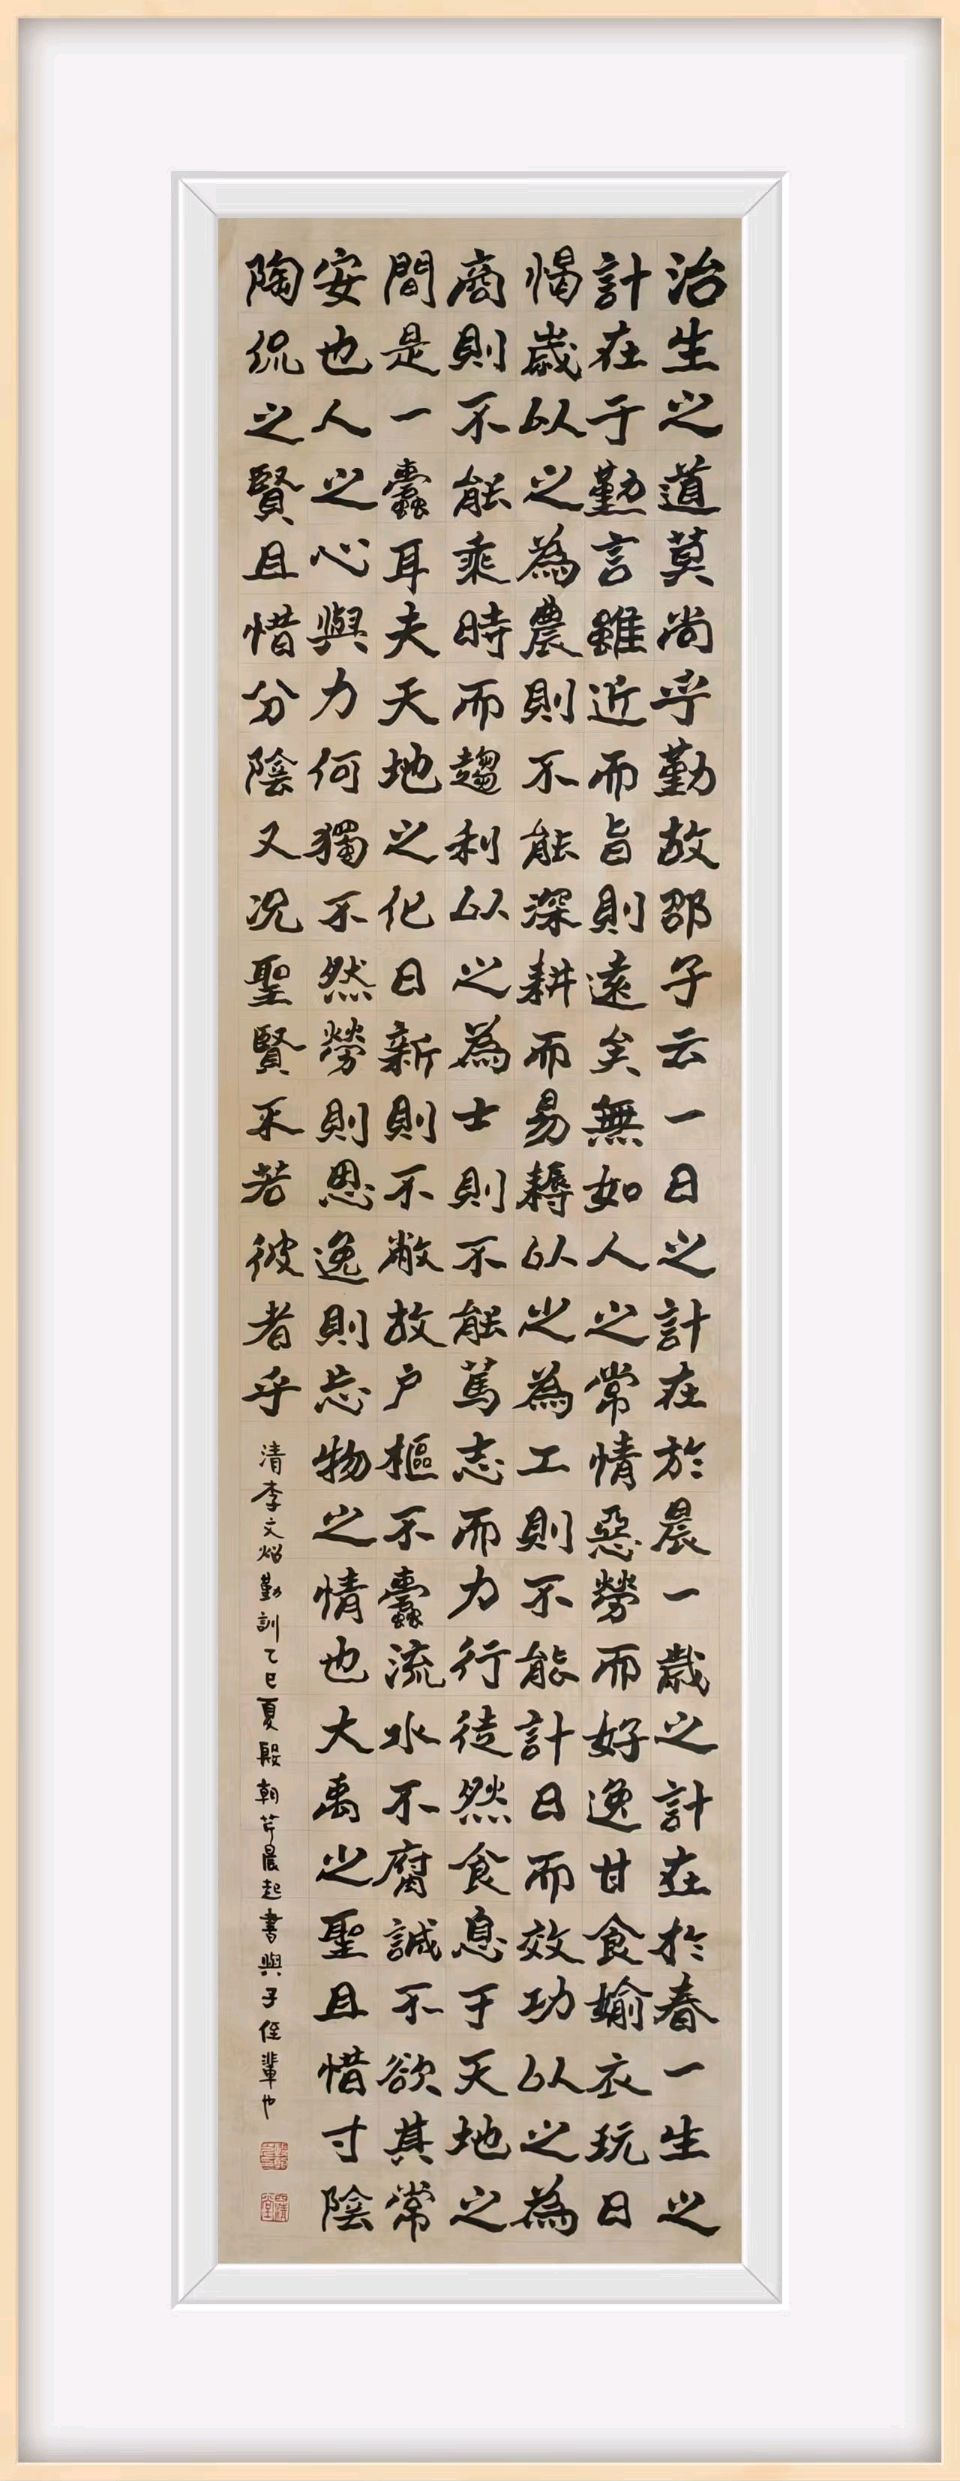 治生之道莫尚乎勤故邵子云一日之計在於晨一歲之計在於春一生之
計在于勤言雖近而旨則遠矣無如人之常情惡勞而好逸甘食媮衣玩日
愒歲以之為農則不能深耕而易耨以之為工則不能計日而效功以之為
商則不能乘時而趨利以之為士則不能篤志而力行徒然食息于天地之
間是一蠹耳夫天地之化日新則不敝故户樞不蠹流水不腐誠不欲其常
安也人之心與力何獨不然勞則思逸則忘物之情也大禹之聖且惜寸陰
陶侃之賢且惜分陰又況聖賢不若彼者乎
清李文炤勤訓乙巳夏殷朝芹晨起書與子侄輩也